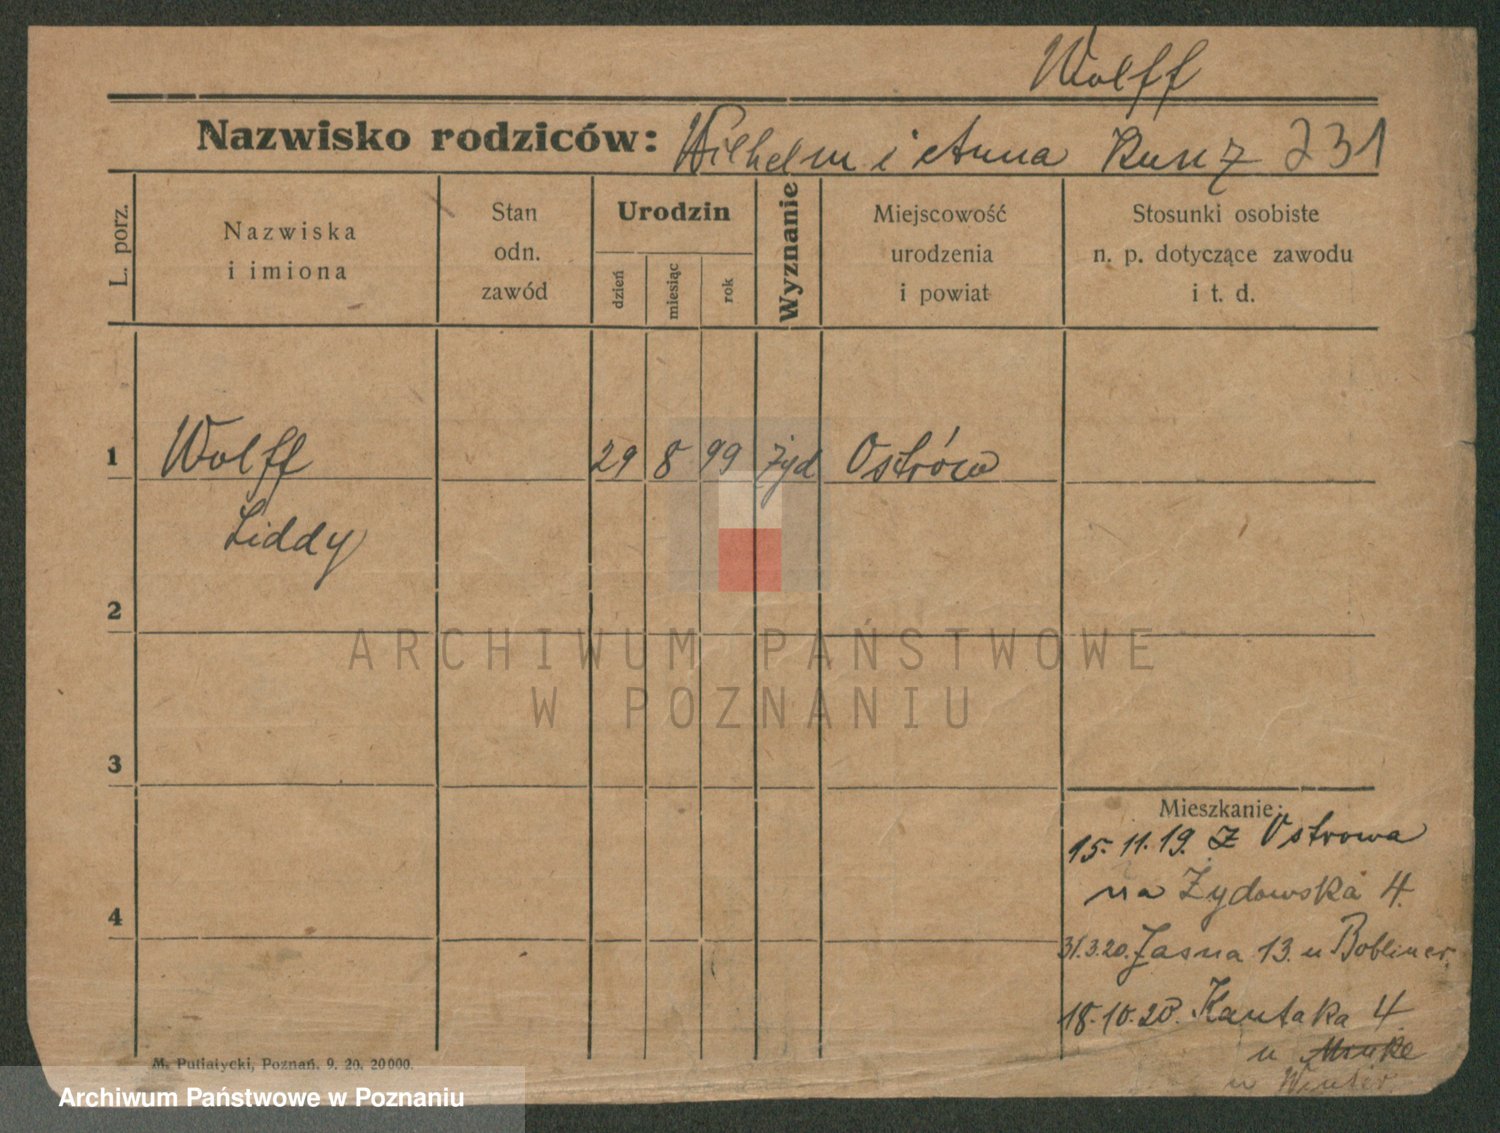 Wolff
Nazwisko rodziców: Wilhelm i Anna Kunz 231
L. porz.
Nazwiska
i imiona
Stan
odn.
zawód
Urodzin
dzień
miesiąc
rok
Wyznanie
Miejscowość
urodzenia
i powiat
Stosunki osobiste
n. p. dotyczące zawodu
i t. d.
1 Wolff 29 8 99 żyd Ostrów
Liddy
2
3
4
Mieszkanie:
15.11.19. z Ostrowa
na Żydowska 4.
31.3.20. Jasna 13. u Bobliner.
18.10.20. Kantaka 4.
u
u Winter
M. Putiatycki, Poznań. 9. 20. 20000.
ARCHIWUM PAŃSTWOWE
W POZNANIU
Archiwum Państwowe w Poznaniu